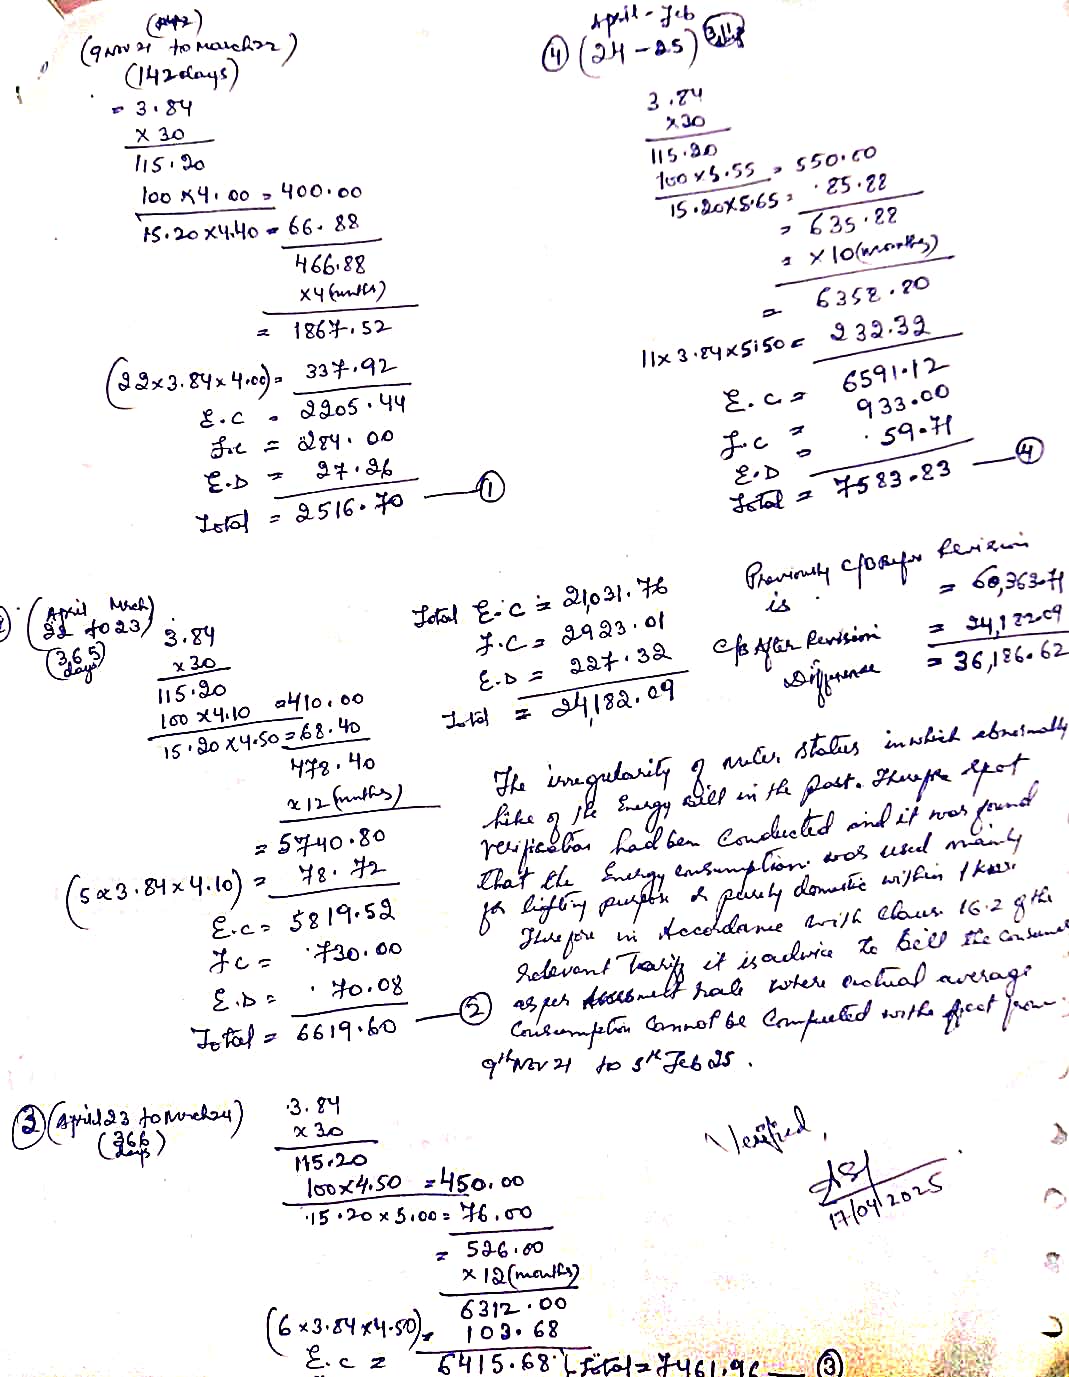 (9 Nov 21 to March 22)
(142 days)
= 3.84
x 30
115.20
100 x 4.00 = 400.00
15.20 x 4.40 = 66.88
466.88
x 4 (months)
= 1867.52
(22 x 3.84 x 4.00) = 337.92
E.C = 2205.44
F.C = 284.00
E.D = 27.26
Total = 2516.70 — ①
April - Feb
④ (24 - 25)
3.84
x 30
115.20
100 x 5.55 = 550.00
15.20 x 5.65 = 85.88
= 635.88
= x 10 (months)
= 6358.80
11 x 3.84 x 5.50 = 232.32
E.C = 6591.12
F.C = 933.00
E.D = 59.71
Total = 7583.83 — ④
(April March
22 to 23)
(365 days)
3.84
x 30
115.20
100 x 4.10 = 410.00
15.20 x 4.50 = 68.40
478.40
x 12 (months)
= 5740.80
(5 x 3.84 x 4.10) = 78.72
E.C = 5819.52
F.C = 730.00
E.D = 70.08
Total = 6619.60 — ②
Total E.C = 21,031.76
F.C = 2923.01
E.D = 227.32
Total = 24,182.09
Previously C/B Before Revision
is = 60,363.71
C/B After Revision = 24,182.09
Difference = 36,186.62
The irregularity of meter status in which abnormally
hike of the Energy bill in the past. Therefore spot
verification had been conducted and it was found
that the Energy consumption was used mainly
for lighting purpose & purely domestic within 1 kw.
Therefore in Accordance with Clause 16.2 of the
relevant Tariff it is advice to bill the consumer
as per Assessment rate where actual average
Consumption cannot be computed with effect from
9th Nov 21 to 5th Feb 25.
③ (April 23 to March 24)
(366 days)
3.84
x 30
115.20
100 x 4.50 = 450.00
15.20 x 5.00 = 76.00
= 526.00
x 12 (months)
6312.00
(6 x 3.84 x 4.50) = 103.68
E.C = 6415.68 Total = 7461.96 — ③
Verified,
17/04/2025